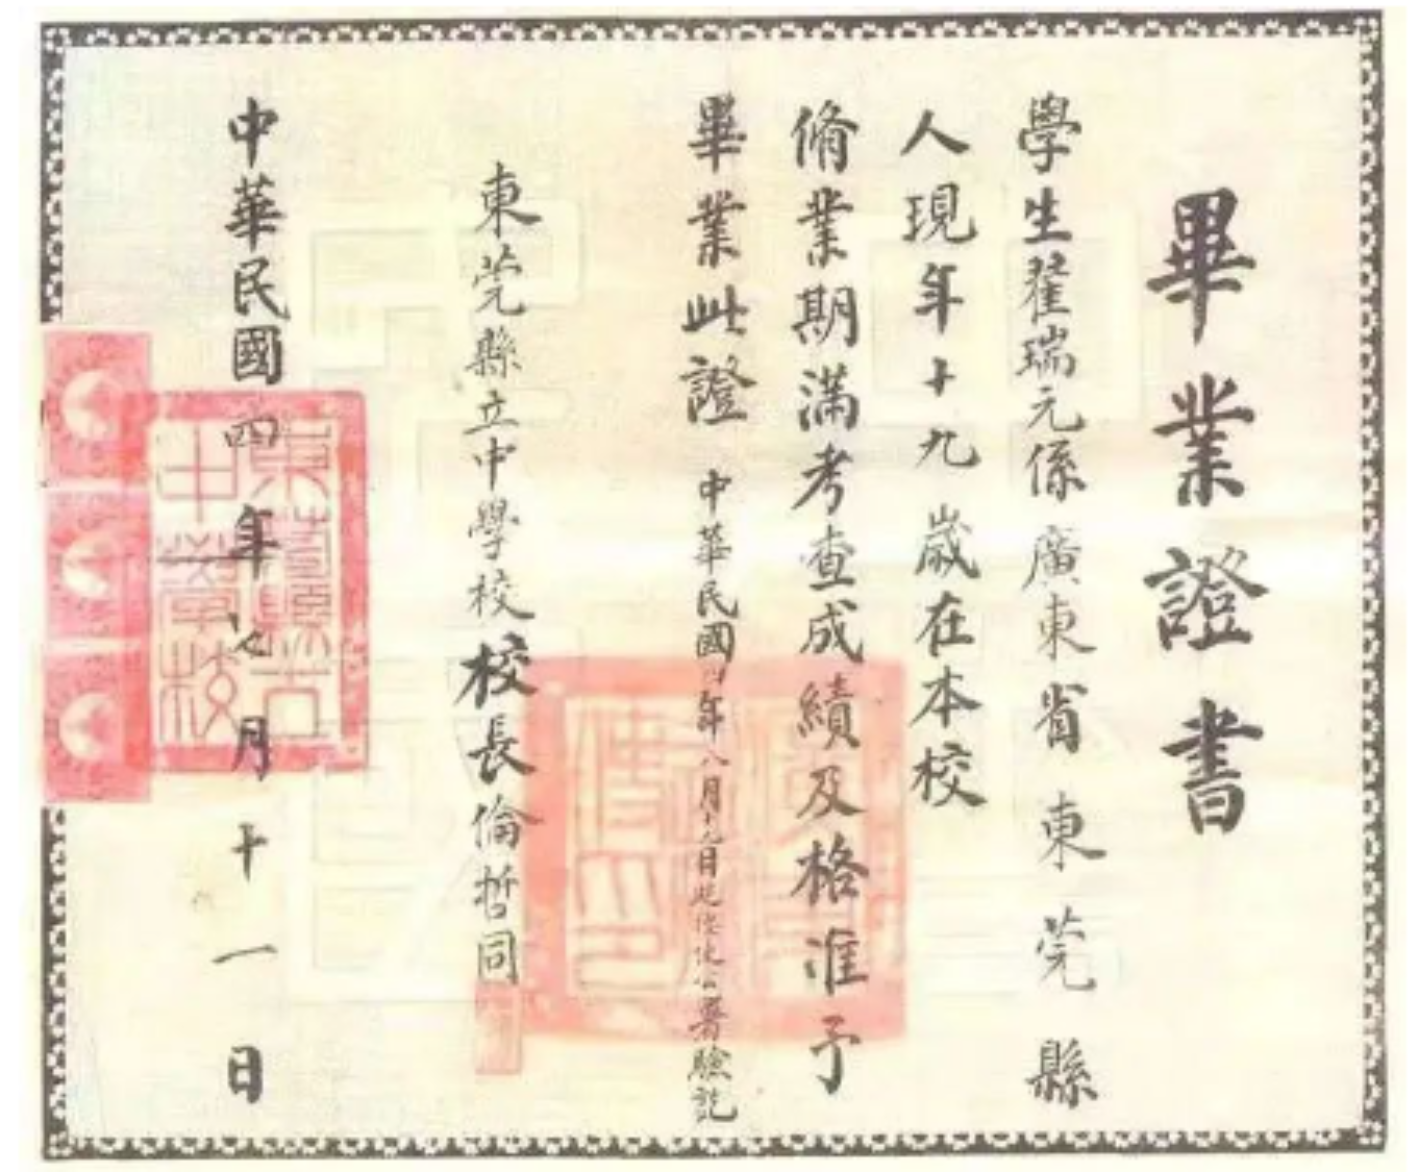 畢業證書
學生翟瑞元係廣東省東莞縣
人現年十九歲在本校
脩業期滿考查成績及格准予
畢業此證
中華民國四年八月十九日 公署驗訖
東莞縣立中學校校長倫哲同
中華民國四年七月十一日